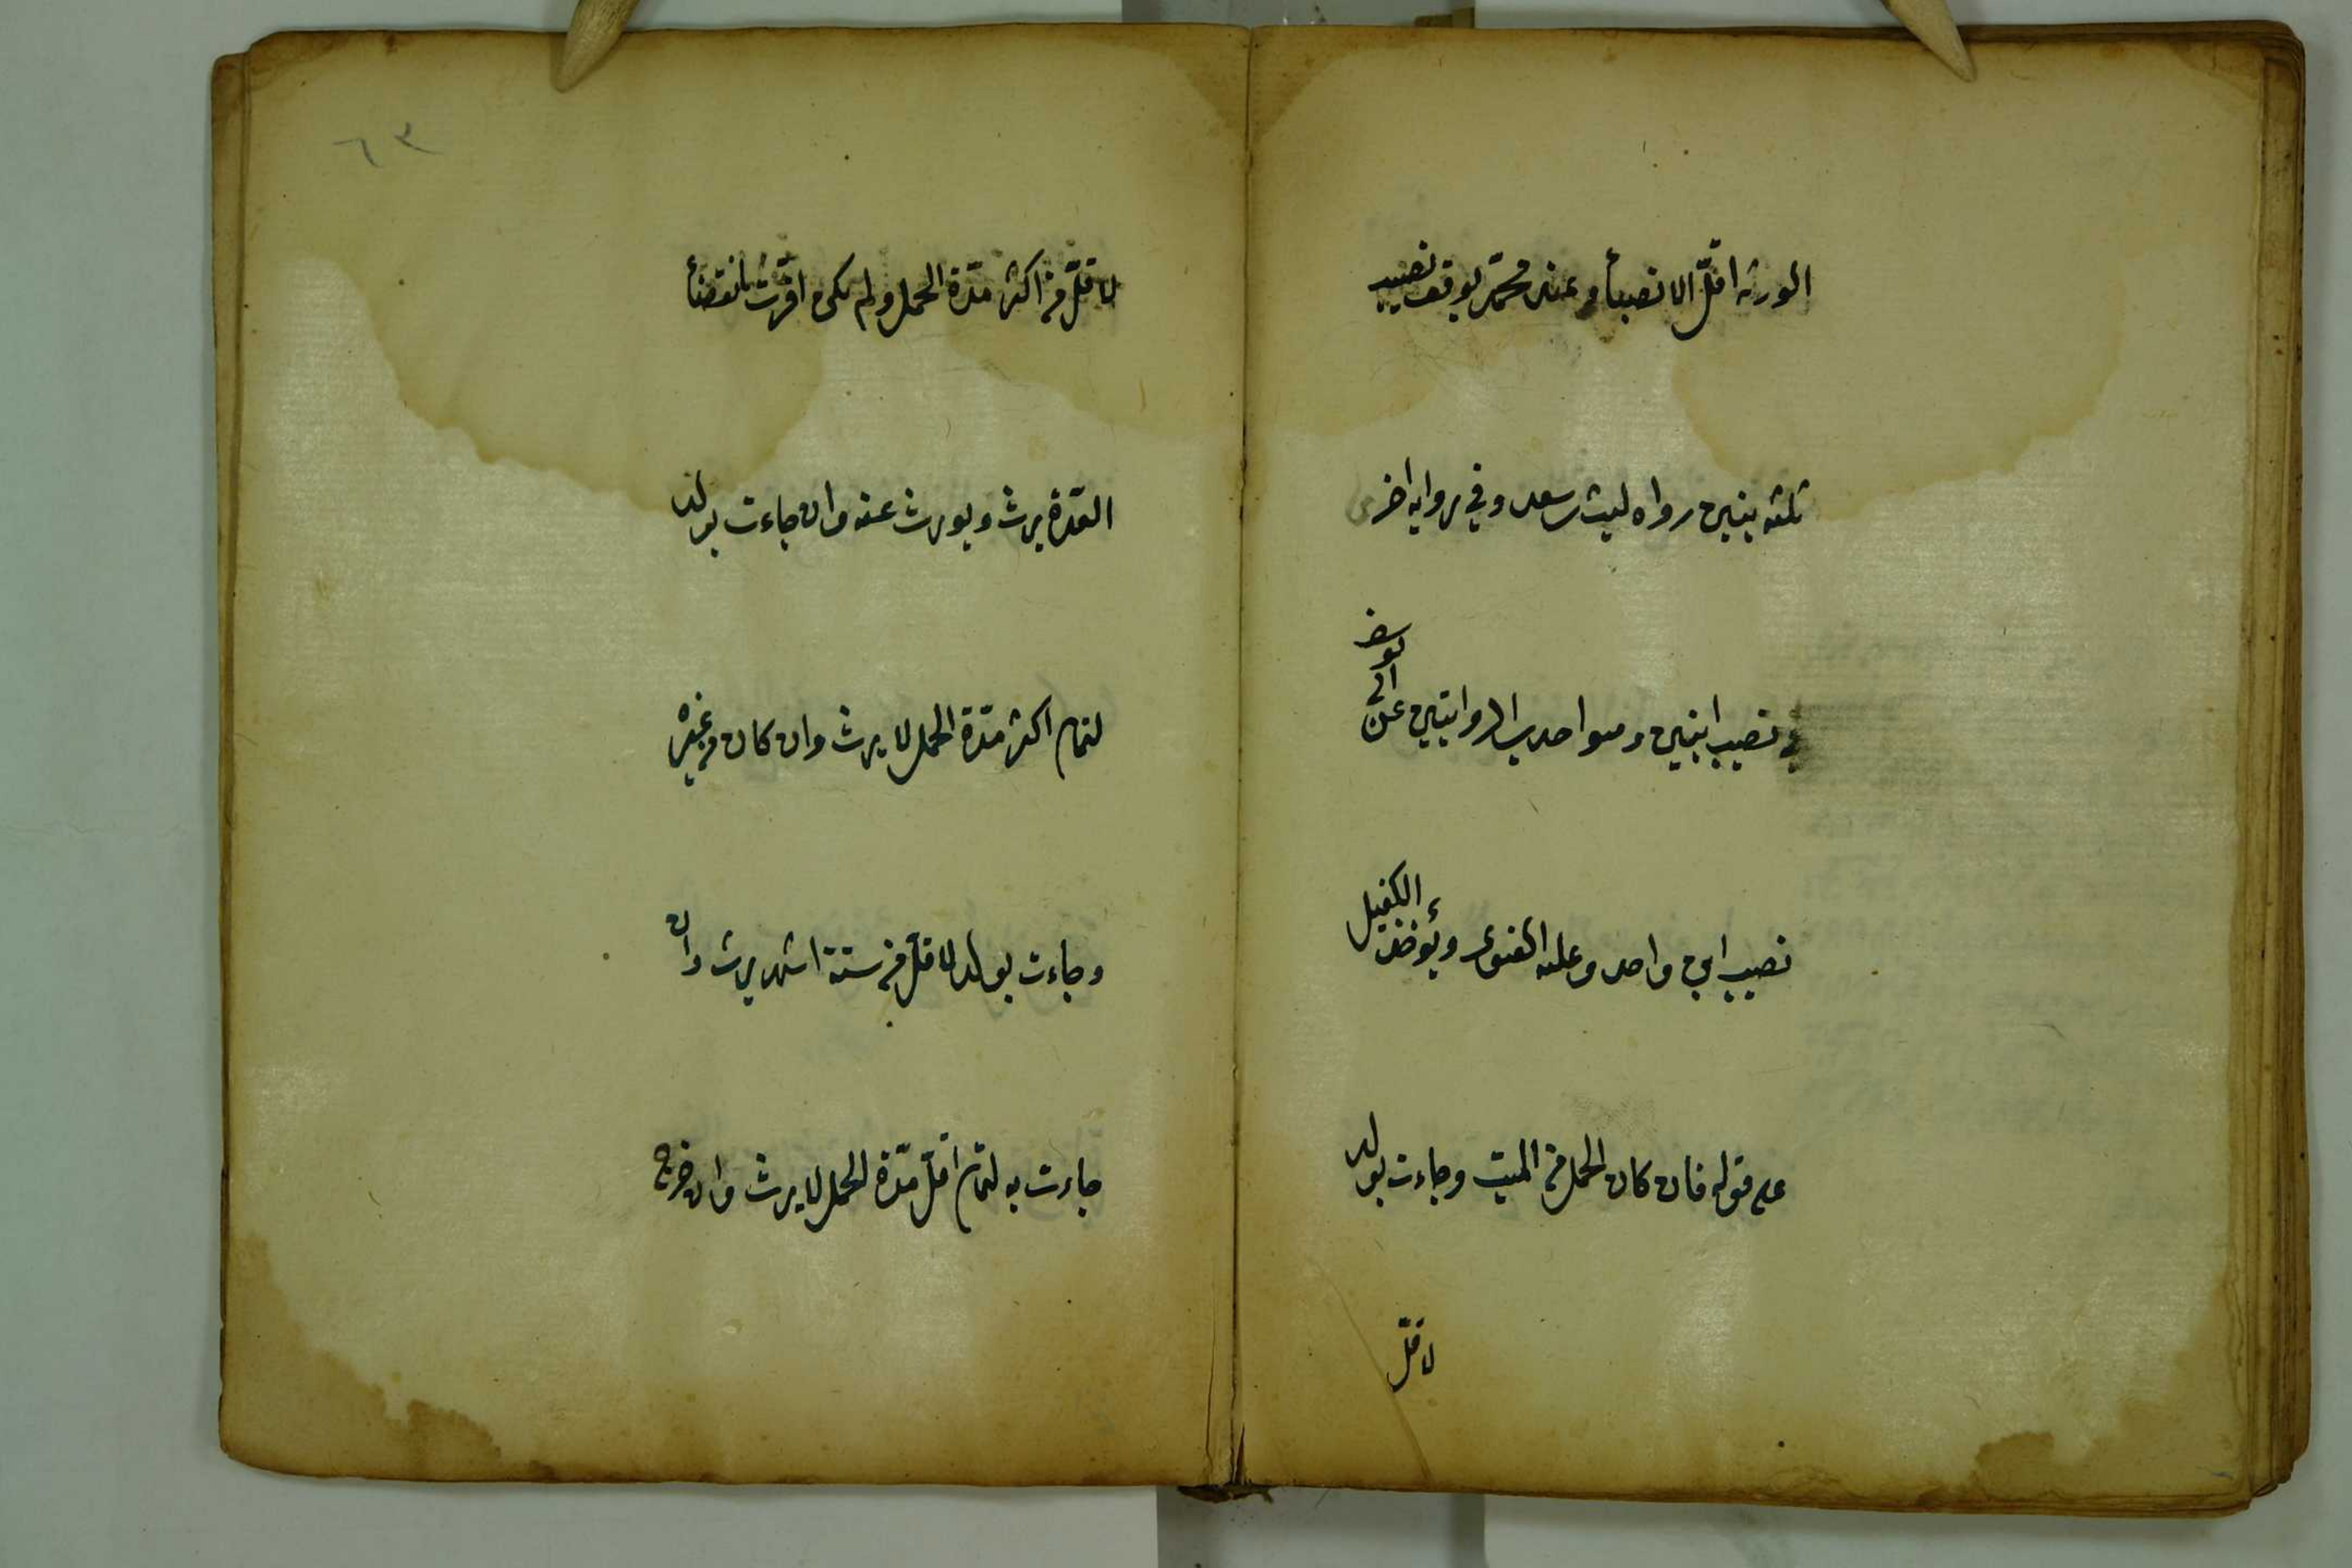 الورثه اقلّ الانصبأ وعند محمّد يوقف نصيب
ثلثه بنين رواه ليث بن سعد وفي روايه اخرى
نصيب ابنين وهو احدى الروايتين عن ابي يوسف
نصيب ابن واحد وعليه الفتوى ويؤخذ الكفيل
على قوله فان كان الحمل من الميت وجاءت بولد
لاقلّ
٦٣
لاقلّ من اكثر مدّة الحمل ولم يكن اقرّت بانقضأ
العدّة يرث ويورث عنه وان جاءت بولد
لتمام اكثر مدّة الحمل لا يرث وان كان من غيره
وجاءت بولد لاقلّ من ستة اشهر يرث وان
جاءت به لتمام اقلّ مدّة الحمل لا يرث وان خرج